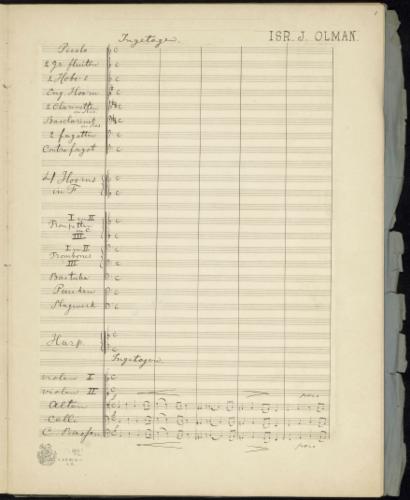 Ingetogen.
ISR. J. OLMAN.
Piccolo
2 gr. fluiten
2 Hobo's
Eng. Hoorn
2 Clarinetten
Basclarinet
2 fagotten
Contrafagot
4 Hoorns
in F
I en II
Trompetten
in C
III
I en II
Trombones
III
Bastuba
Pauken
Slagwerk
Harp
Ingetogen.
violen I
violen II
Alten
Celli
C. Bassen